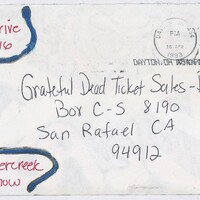 rive
16
PM
DAYTON, OH
Grateful Dead Ticket Sales-
Box C-S 8190
San Rafael CA
94912
ercreek
now